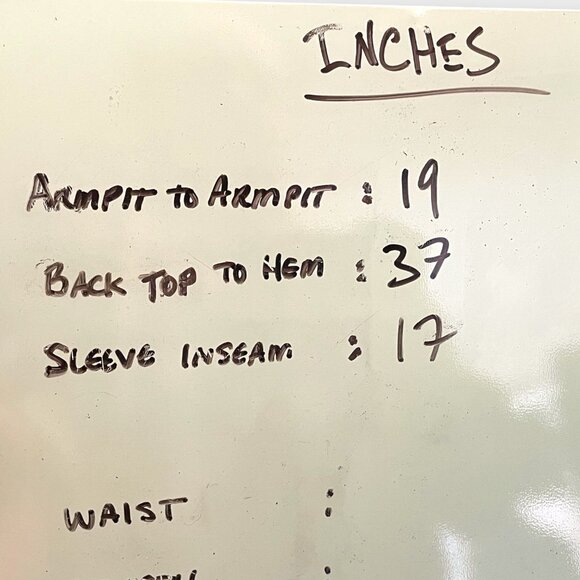 INCHES
ARMPIT TO ARMPIT : 19
BACK TOP TO HEM : 37
SLEEVE INSEAM : 17
WAIST :
: